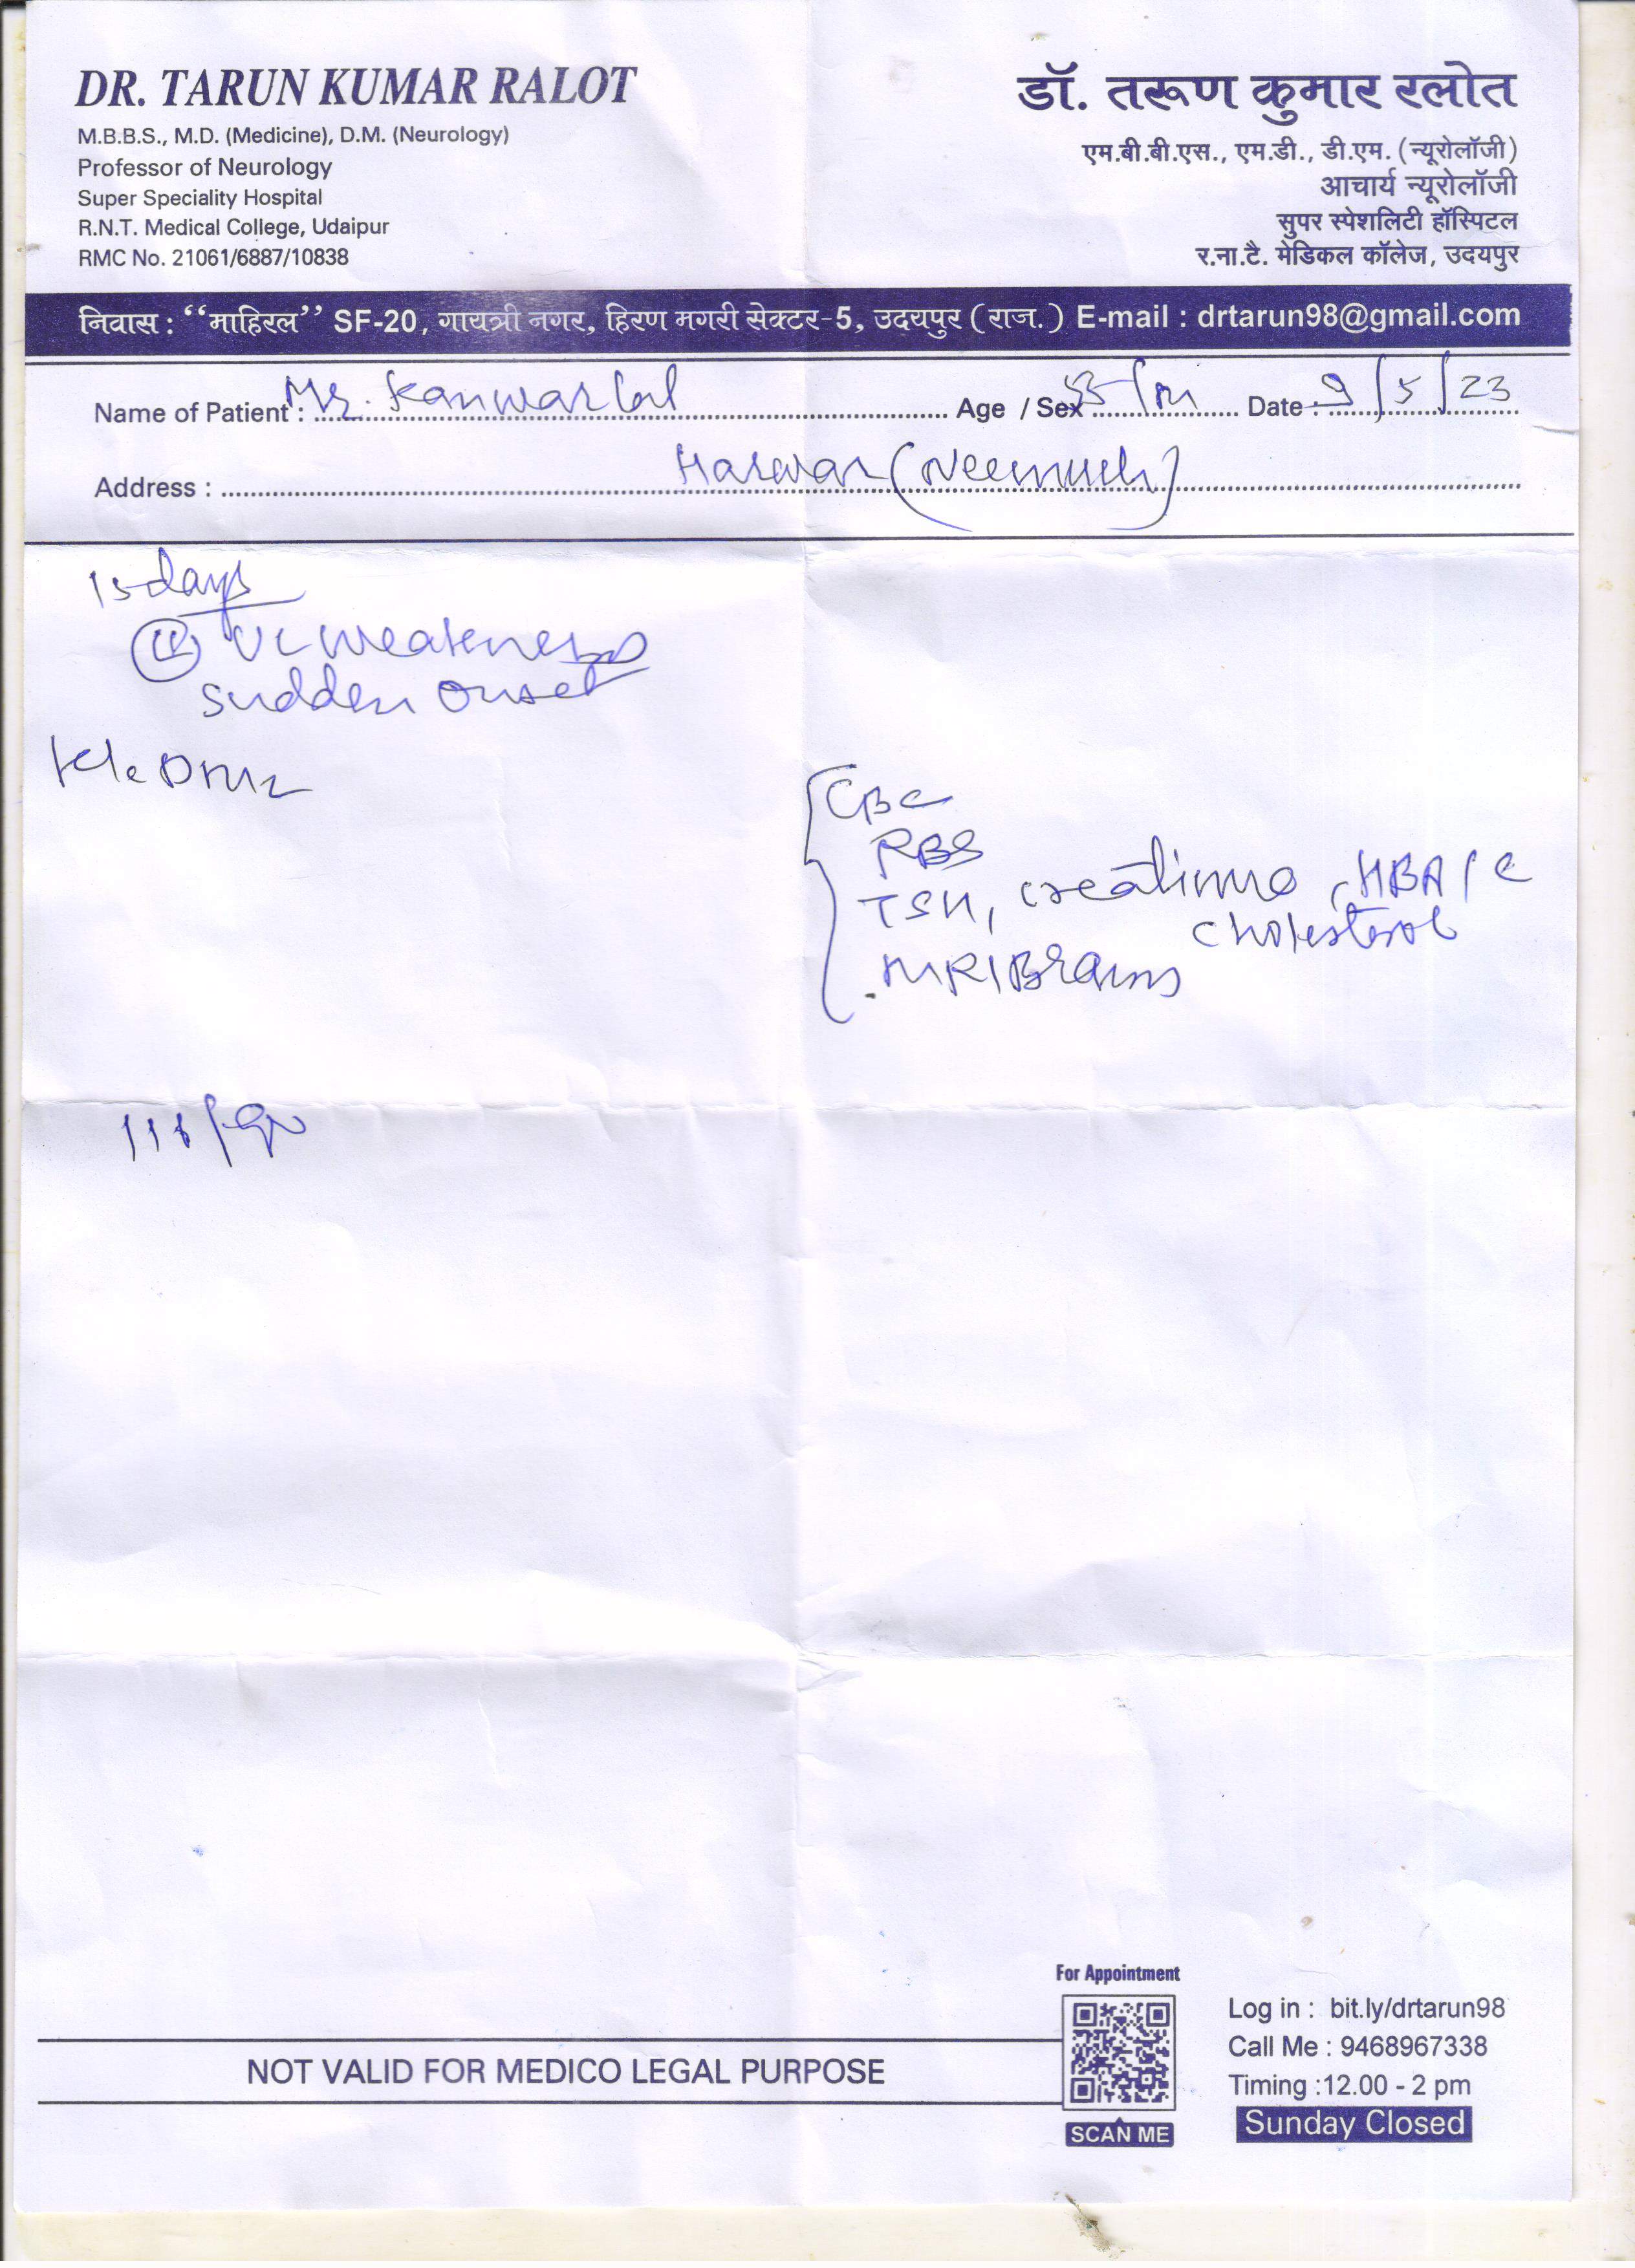 DR. TARUN KUMAR RALOT
M.B.B.S., M.D. (Medicine), D.M. (Neurology)
Professor of Neurology
Super Speciality Hospital
R.N.T. Medical College, Udaipur
RMC No. 21061/6887/10838
डॉ. तरूण कुमार रलोत
एम.बी.बी.एस., एम.डी., डी.एम. (न्यूरोलॉजी)
आचार्य न्यूरोलॉजी
सुपर स्पेशलिटी हॉस्पिटल
र.ना.टै. मेडिकल कॉलेज, उदयपुर
निवास : “माहिरल” SF-20, गायत्री नगर, हिरण मगरी सेक्टर-5, उदयपुर (राज.) E-mail : drtarun98@gmail.com
Name of Patient : Mr. Kanwarlal Age / Sex /M Date 9/5/23
Address : Harwar (Neemuch)
15 days
UL weakness
sudden onset
CBC
RBS
TSH, creatinine, HBA1C
cholesterol
MRI Brain
For Appointment
SCAN ME
Log in : bit.ly/drtarun98
Call Me : 9468967338
Timing :12.00 - 2 pm
Sunday Closed
NOT VALID FOR MEDICO LEGAL PURPOSE